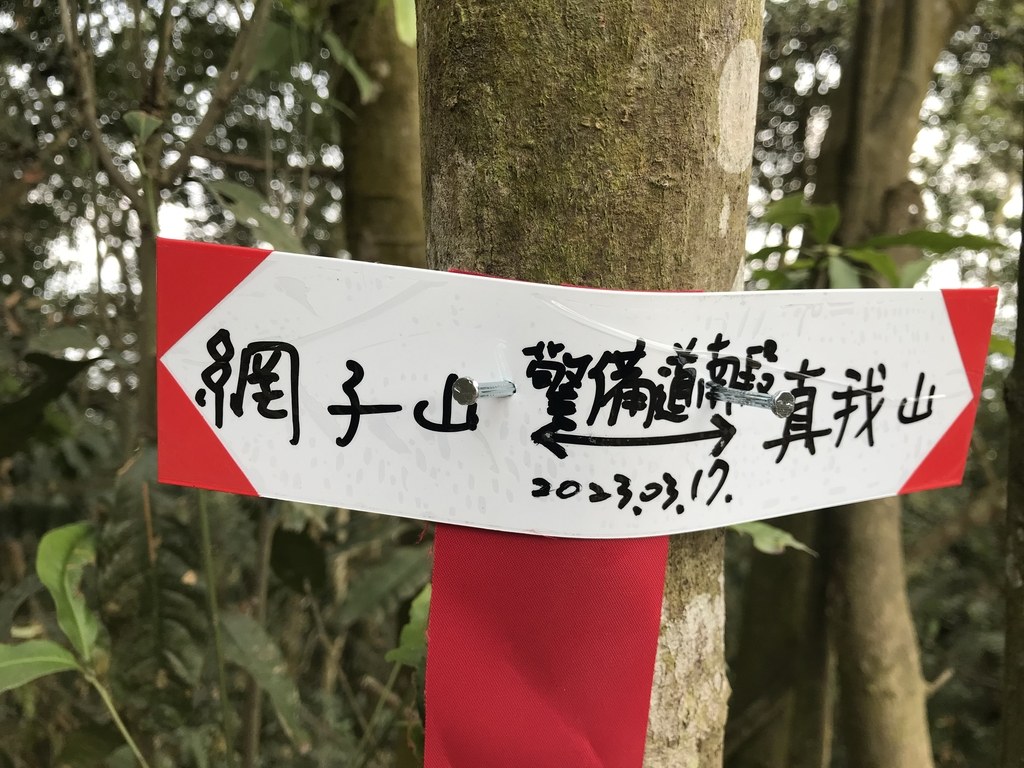 網子山 警備道南段 真我山
2023.03.17.